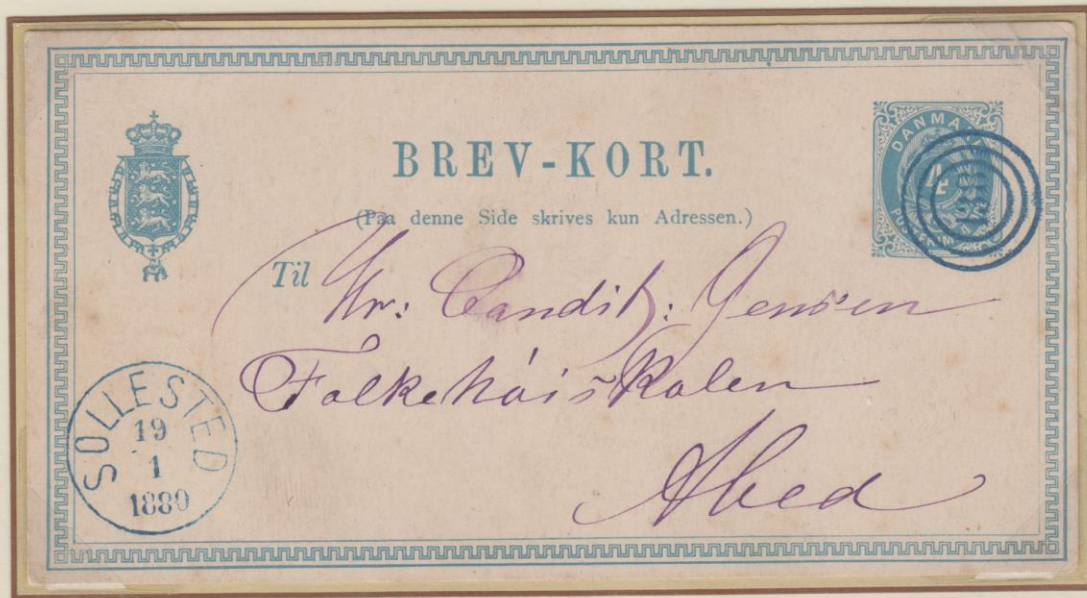 BREV-KORT.
(Paa denne Side skrives kun Adressen.)
DANMARK
4
Til Hr: Candit: Jensen
Folkehøiskolen
Abed
SOLLESTED
19
1
1880